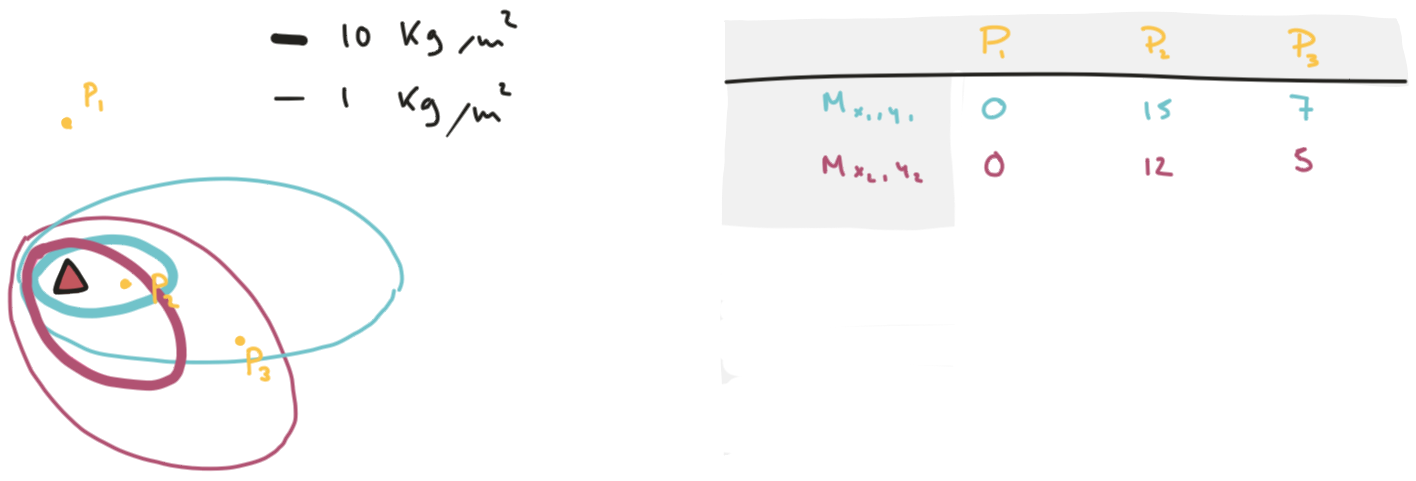 10 Kg/m²
1 Kg/m²
P₁
P₂
P₃
P₁ P₂ P₃
Mx₁,y₁ 0 15 7
Mx₂,y₂ 0 12 5